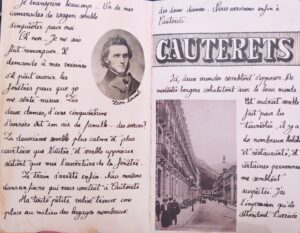 Je transpire beaucoup... Un de mes
camarades de wagon semble
s'inquiéter pour moi.
"
Et non. Je me suis
fait remarquer. Il
demande à mes voisines
s'il peut ouvrir les
fenêtres pour que je
me sente mieux. Les
deux dames, d'une cinquantaine
d'années ont l'air de famille : des soeurs ?
La deuxième semble plus calme et plus
que l'autre, et semble apprécier
autant que moi l'ouverture de la fenêtre.
Le train s'arrête enfin. Nous montons
dans un fiacre qui nous conduit à Cauterets.
Ma toute petite valise trouve une
place au milieu des bagages nombreux
des deux dames. Nous arrivons enfin à
Cauterets.
CAUTERETS
Ici, deux mondes semblent s'opposer. De
modestes bergers cohabitent avec le beau monde.
Cet endroit semble
fait pour les
il y a
de nombreux hôtels
et restaurants, et
certaines personnes
me semblent
suspectes. J'ai
l'impression qu'ils
attendent l'arrivée